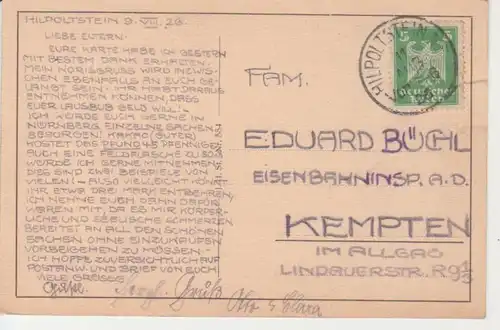 HILPOLTSTEIN 9. VIII. 26.
LIEBE ELTERN.
EURE KARTE HABE ICH GESTERN
MIT BESTEM DANK ERHALTEN.
MEIN NORISGRUSS WIRD INZWI-
SCHEN EBENFALLS AUCH GE-
LANGT SEIN. IHR HABT DARAUS
ENTNEHMEN KÖNNEN, DASS
EUER LAUSBUB GELD WILL! -
ICH WÜRDE EUCH GERNE IN
NÜRNBERG EINZELNE SACHEN
BESORGEN. KAKAO (GUTER)
KOSTET DAS PFUND 48 PFENNIGE
AUCH EINE FELDFLASCHE ZU
WÜRDE ICH GERNE MITNEHMEN
DIES SIND ZWEI BEISPIELE VON
VIELEN! - ALSO VIELLEICHT KÖNNT
IHR ETWA DREI MARK ENTBEHREN.
ICH NEHME EUCH DANN DAFÜR
WAREN MIT, DA ES MIR KÖRPER-
LICHE UND SEELISCHE SCHMERZEN
BEREITET AN ALL DEN SCHÖNEN
SACHEN OHNE EINZUKAUFEN
VORBEIGEHEN ZU MÜSSEN. -
ICH HOFFE ZUVERSICHTLICH AUF
POSTANW. UND BRIEF VON EUCH
VIELE GRÜSSE
Gruß Otto & Klara
HILPOLTSTEIN
5
Deutsches
Reich
FAM.
EDUARD BÜCHL
EISENBAHNINSP. A.D.
KEMPTEN
IM ALLGÄU
LINDAUERSTR. R 9 1/2